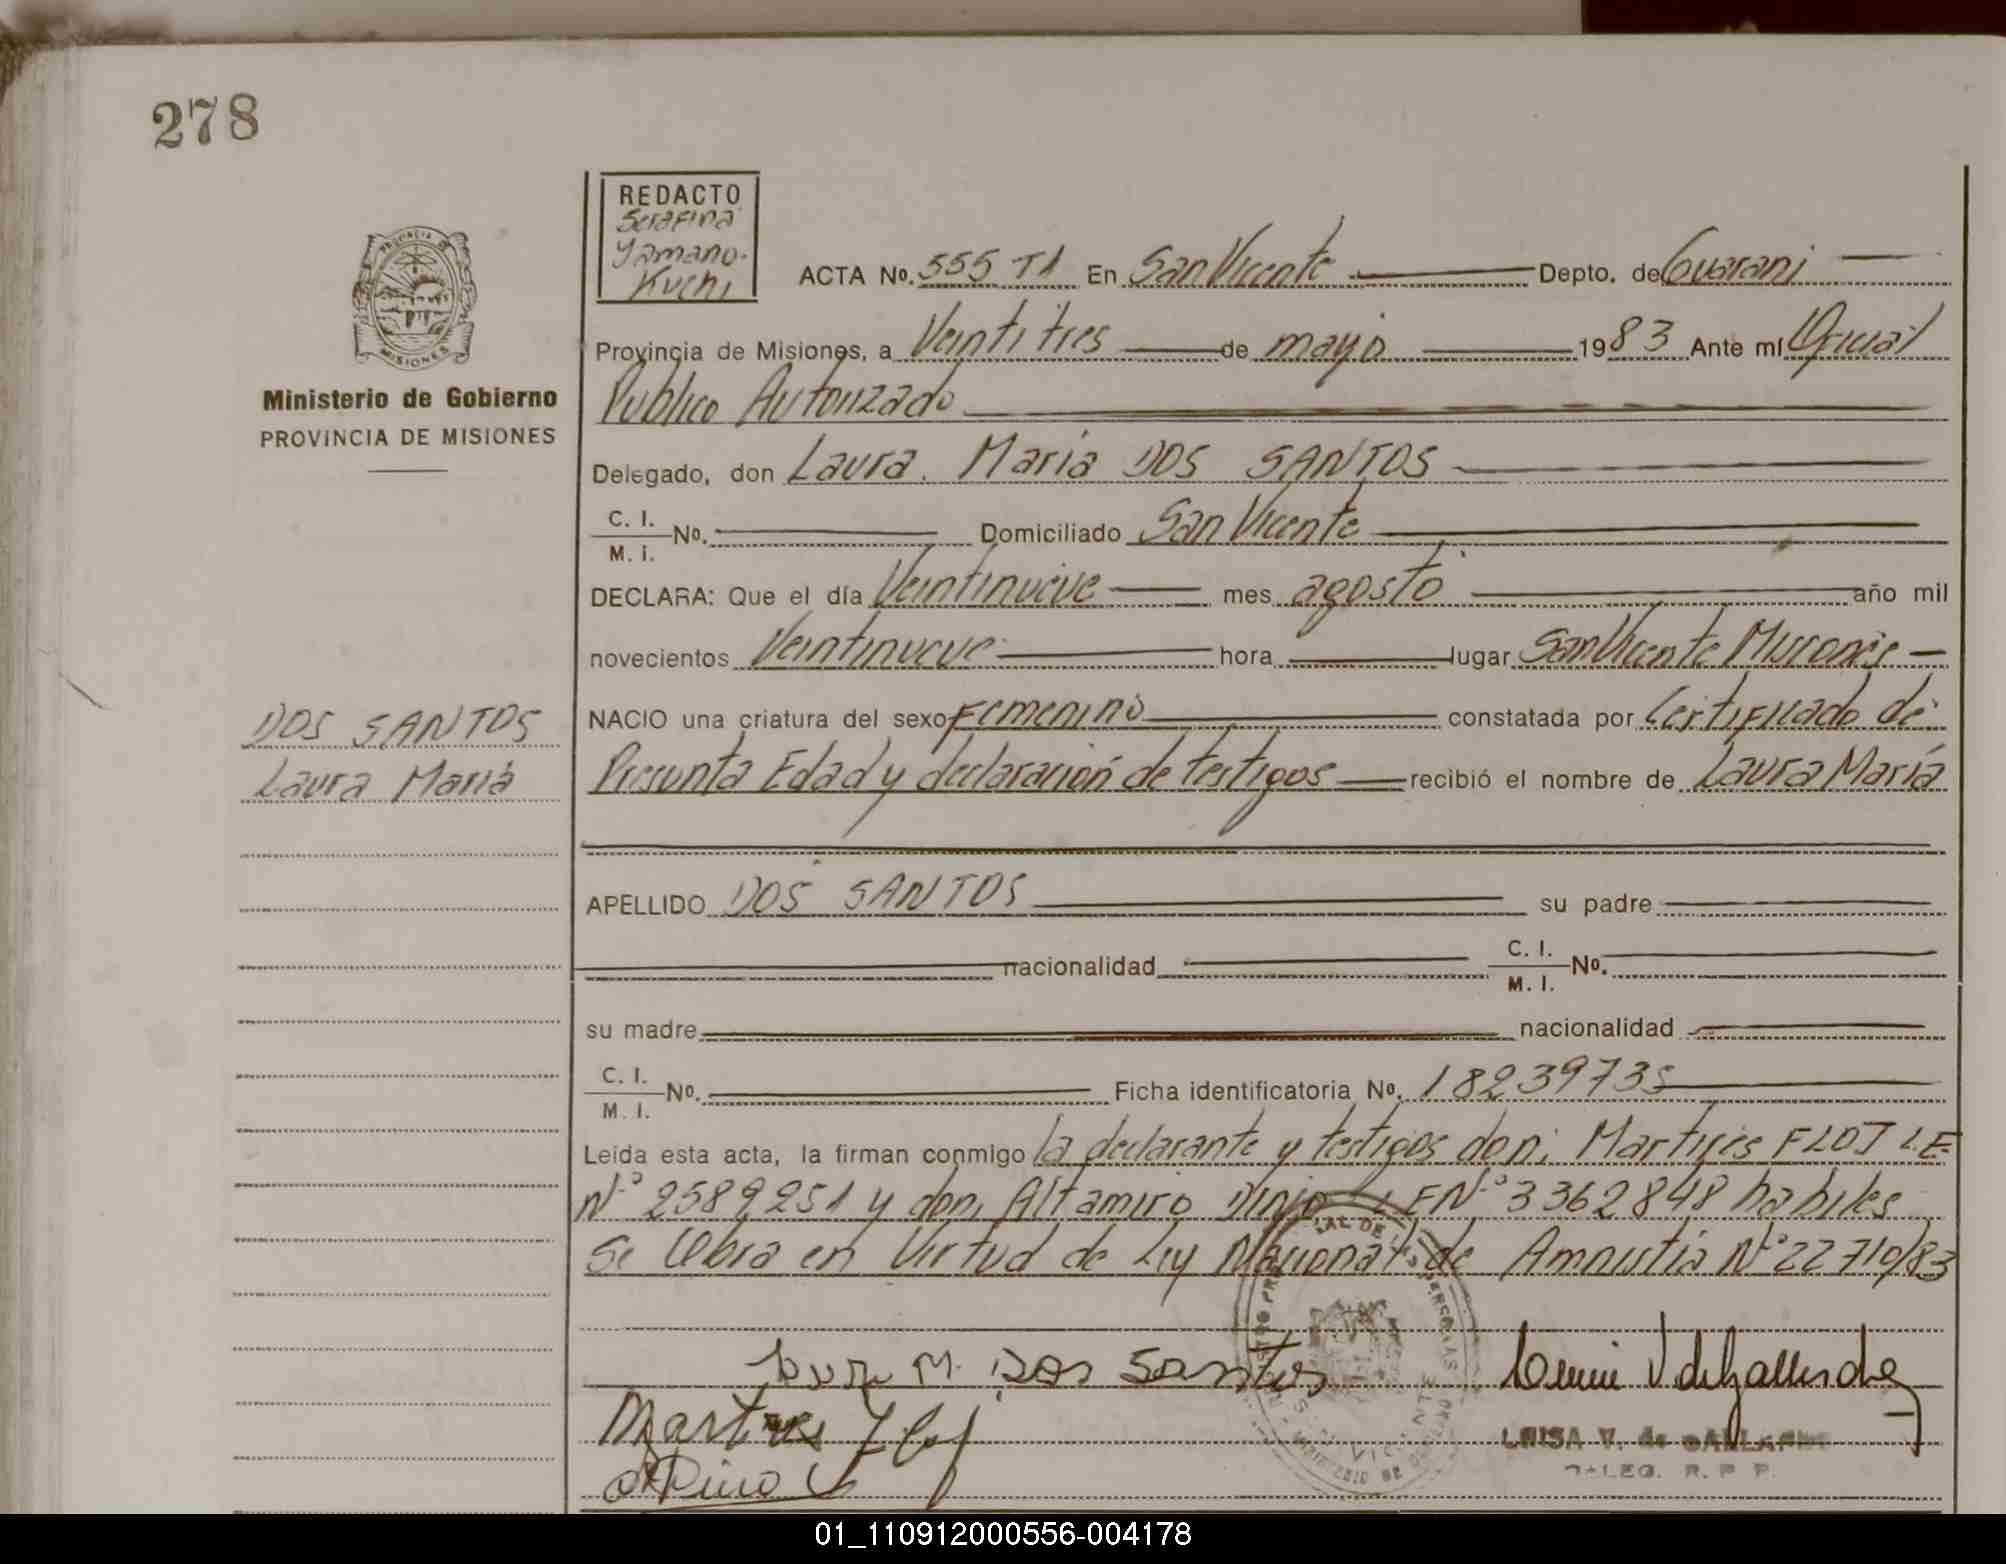 278
REDACTO
Serafina
Yamano-
Kuchi
PROVINCIA DE
MISIONES
Ministerio de Gobierno
PROVINCIA DE MISIONES
ACTA No. 555 T1 En San Vicente Depto. de Guarani
Provincia de Misiones, a Veintitres de mayo 1983 Ante mí Oficial
Publico Autorizado
Delegado, don Laura María DOS SANTOS
C. I. / M. I. No. Domiciliado San Vicente
DECLARA: Que el día Veintinueve mes agosto año mil
novecientos Veintinueve hora lugar San Vicente Misiones
NACIO una criatura del sexo Femenino constatada por Certificado de
Presunta Edad y declaración de testigos recibió el nombre de Laura María
DOS SANTOS
Laura María
APELLIDO DOS SANTOS su padre
nacionalidad C. I. / M. I. No.
su madre nacionalidad
C. I. / M. I. No. Ficha identificatoria No. 18239735
Leída esta acta, la firman conmigo la declarante y testigos don; Martires FLOJ L.E.
Nº 2589251 y don, Altamiro LE Nº 3362848 habiles
Se Labra en Virtud de Ley Nacional de Amnistía Nº 22710/83
M. Dos Santos
Martires
LUISA V. de
DELEG. R. P. P.
01_110912000556-004178